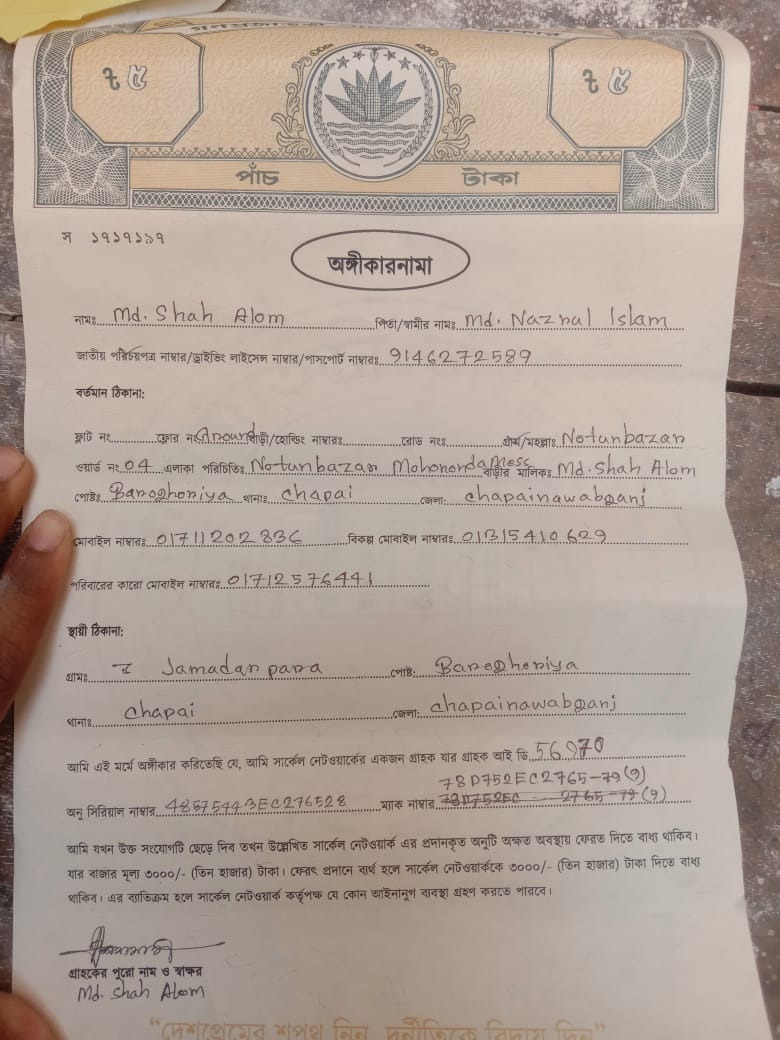 ৳ ৫ ৳ ৫
পাঁচ টাকা
স ১৭১৭১৯৭
অঙ্গীকারনামা
নামঃ Md. Shah Alom পিতা/স্বামীর নামঃ Md. Nazrul Islam
জাতীয় পরিচয়পত্র নাম্বার/ড্রাইভিং লাইসেন্স নাম্বার/পাসপোর্ট নাম্বারঃ 9146272589
বর্তমান ঠিকানা:
ফ্লাট নং ফ্লোর নং Ground বাড়ী/হোল্ডিং নাম্বারঃ রোড নংঃ গ্রাম/মহল্লাঃ Notunbazar
ওয়ার্ড নং 04 এলাকা পরিচিতিঃ Notunbazar Mohononda Mess বাড়ীর মালিকঃ Md. Shah Alom
পোষ্টঃ Baroghoriya থানাঃ Chapai জেলা: chapainawabganj
মোবাইল নাম্বারঃ 01711202836 বিকল্প মোবাইল নাম্বারঃ 01315410629
পরিবারের কারো মোবাইল নাম্বারঃ 01712576441
স্থায়ী ঠিকানা:
গ্রামঃ Jamadar para পোষ্ট: Baroghoriya
থানাঃ Chapai জেলা: chapainawabganj
আমি এই মর্মে অঙ্গীকার করিতেছি যে, আমি সার্কেল নেটওয়ার্কের একজন গ্রাহক যার গ্রাহক আই ডি 56970
78D752EC2765-79(9)
অনু সিরিয়াল নাম্বার 48575443EC276528 ম্যাক নাম্বার 78D752EC 2765-79(9)
আমি যখন উক্ত সংযোগটি ছেড়ে দিব তখন উল্লেখিত সার্কেল নেটওয়ার্ক এর প্রদানকৃত অনুটি অক্ষত অবস্থায় ফেরত দিতে বাধ্য থাকিব।
যার বাজার মূল্য ৩০০০/- (তিন হাজার) টাকা। ফেরৎ প্রদানে ব্যর্থ হলে সার্কেল নেটওয়ার্ককে ৩০০০/- (তিন হাজার) টাকা দিতে বাধ্য
থাকিব। এর ব্যতিক্রম হলে সার্কেল নেটওয়ার্ক কর্তৃপক্ষ যে কোন আইনানুগ ব্যবস্থা গ্রহণ করতে পারবে।
গ্রাহকের পুরো নাম ও স্বাক্ষর
Md. Shah Alom
“দেশপ্রেমের শপথ নিন, দুর্নীতিকে বিদায় দিন”